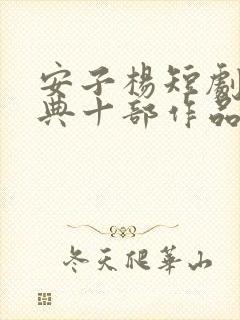 安子楊短劇
典十部作品
冬天爬華山